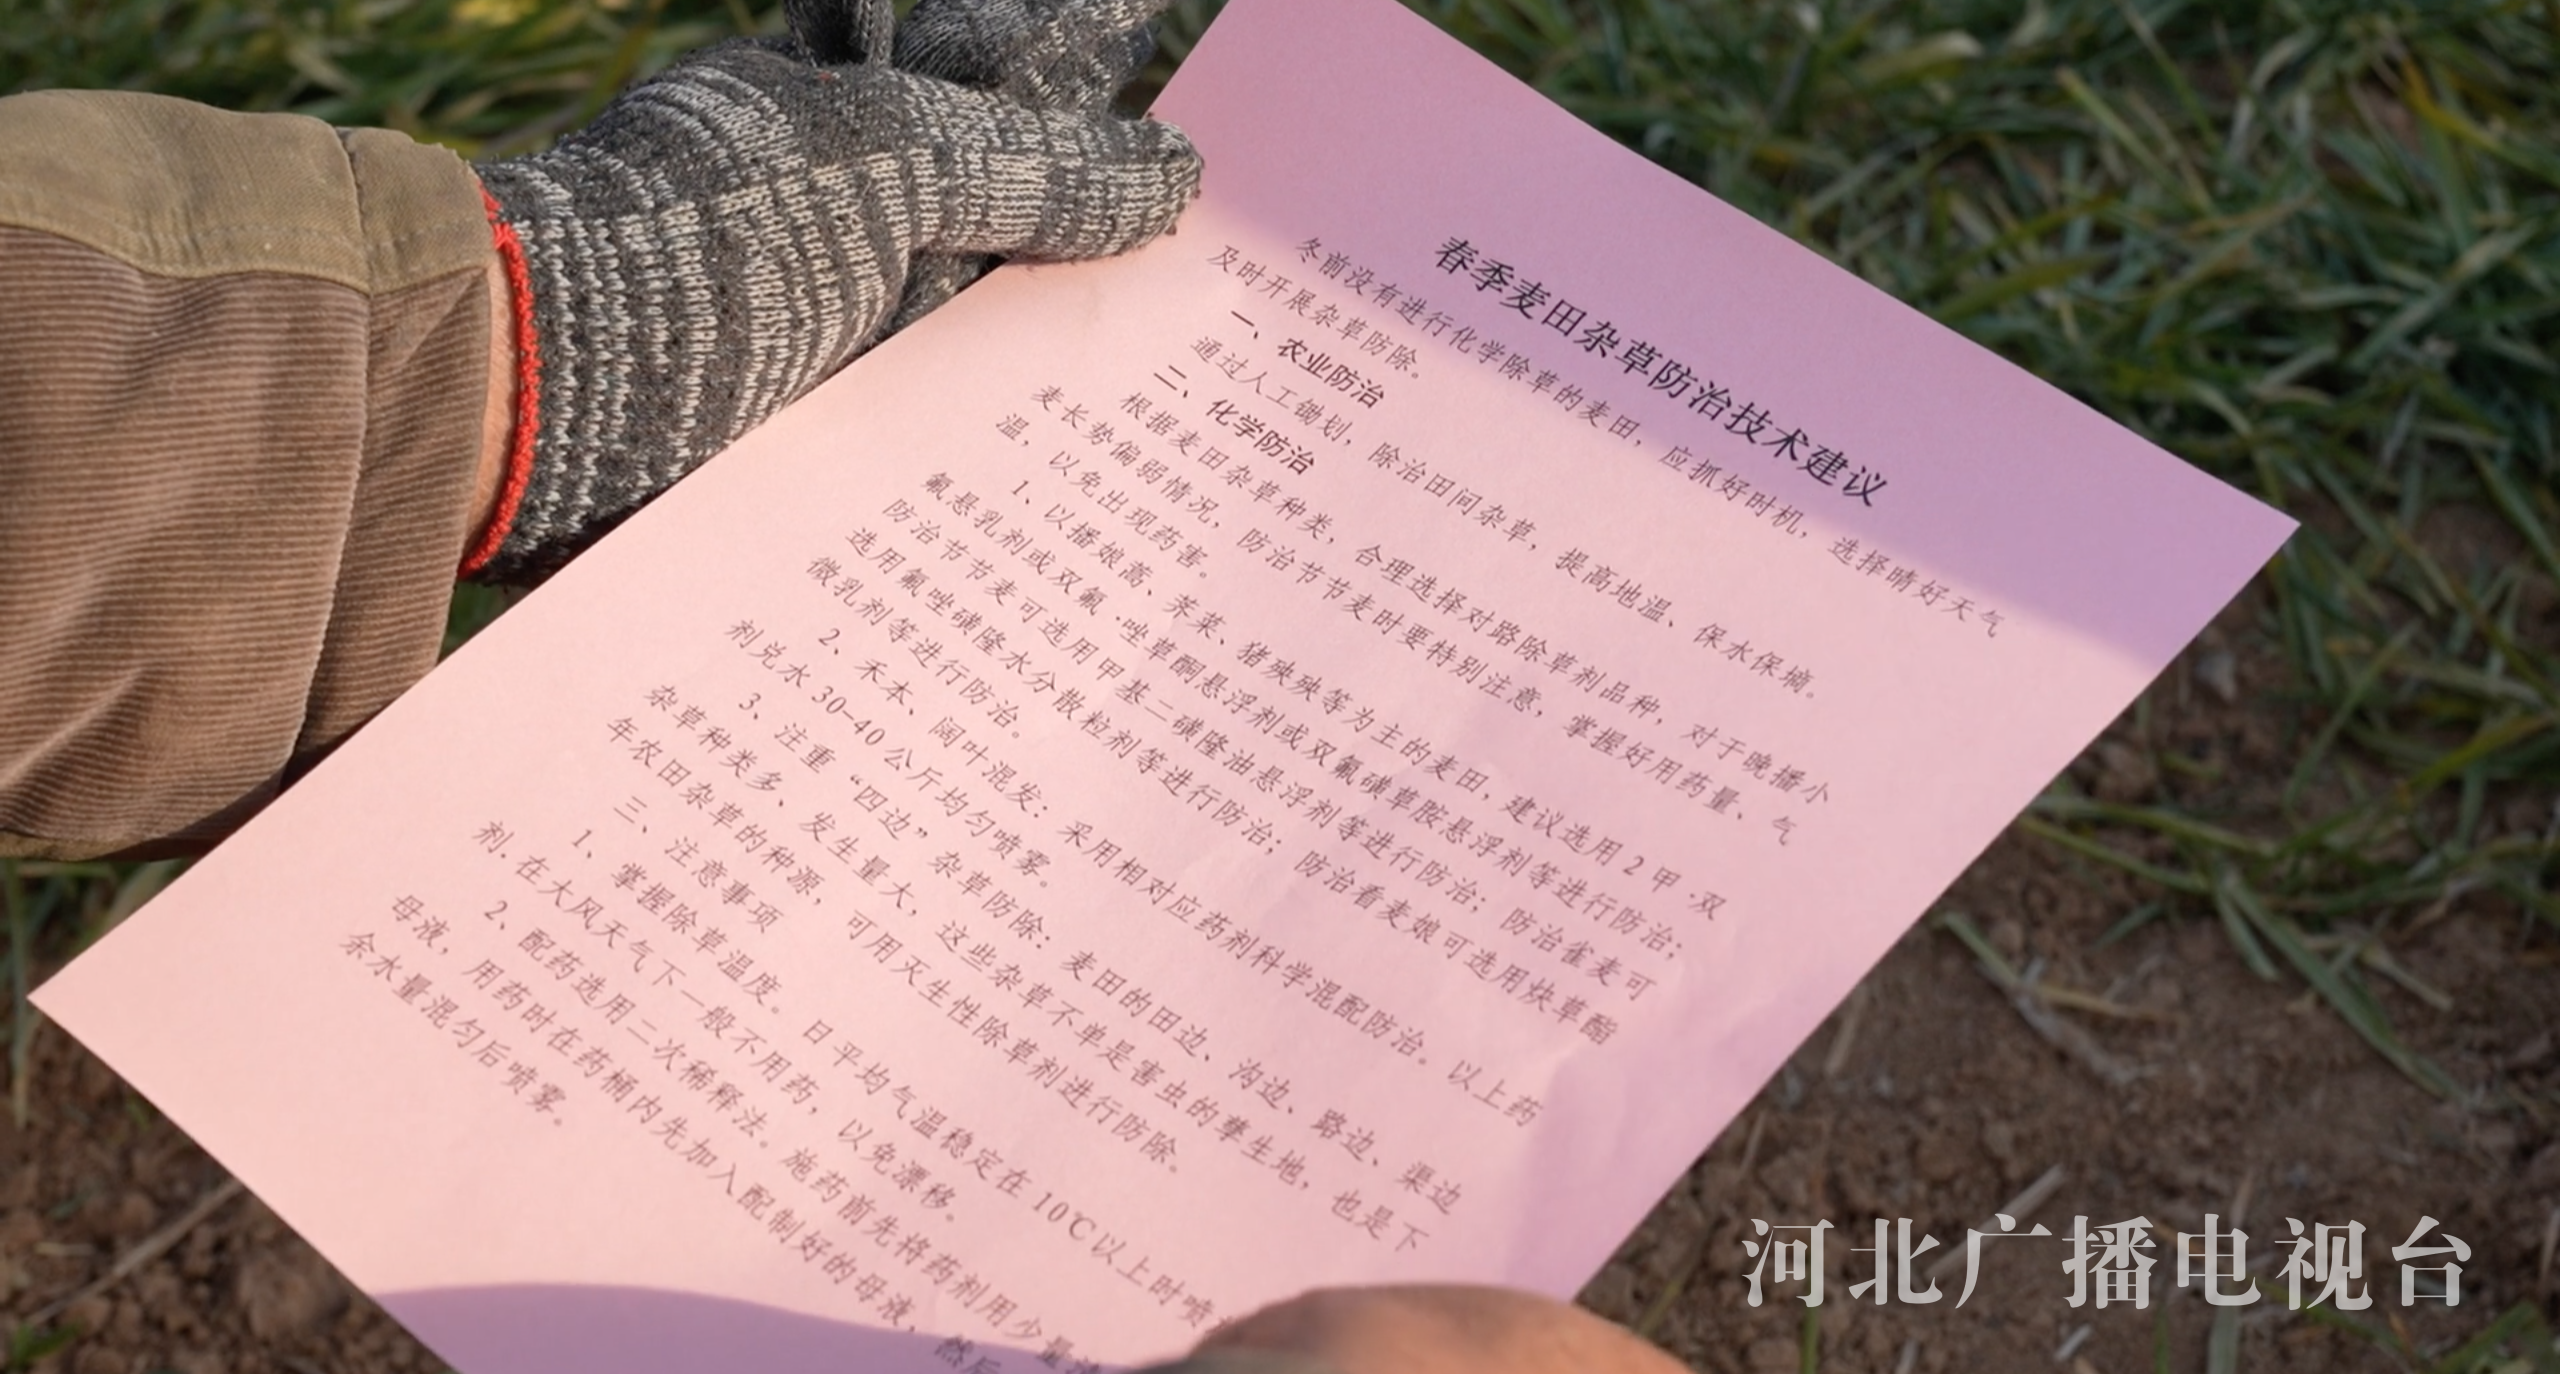 春季麦田杂草防治技术建议
冬前没有进行化学除草的麦田，应抓好时机，选择晴好天气
及时开展杂草防除。
一、农业防治
通过人工锄划，除治田间杂草，提高地温、保水保墒。
二、化学防治
根据麦田杂草种类，合理选择对路除草剂品种，对于晚播小
麦长势偏弱情况，防治节节麦时要特别注意，掌握好用药量、气
温，以免出现药害。
1、以播娘蒿、荠菜、猪殃殃等为主的麦田，建议选用2甲·双
氟悬乳剂或双氟·唑草酮悬浮剂或双氟磺草胺悬浮剂等进行防治；
防治节节麦可选用甲基二磺隆油悬浮剂等进行防治；防治雀麦可
选用氟唑磺隆水分散粒剂等进行防治；防治看麦娘可选用炔草酯
微乳剂等进行防治。
2、禾本、阔叶混发：采用相对应药剂科学混配防治。以上药
剂兑水30-40公斤均匀喷雾。
3、注重“四边”杂草防除：麦田的田边、沟边、路边、渠边
杂草种类多、发生量大，这些杂草不单是害虫的孳生地，也是下
年农田杂草的种源，可用灭生性除草剂进行防除。
三、注意事项
1、掌握除草温度。日平均气温稳定在10℃以上时喷
剂.在大风天气下一般不用药，以免漂移。
2、配药选用二次稀释法。施药前先将药剂用少量
母液，用药时在药桶内先加入配制好的母液，然后
余水量混匀后喷雾。
河北广播电视台